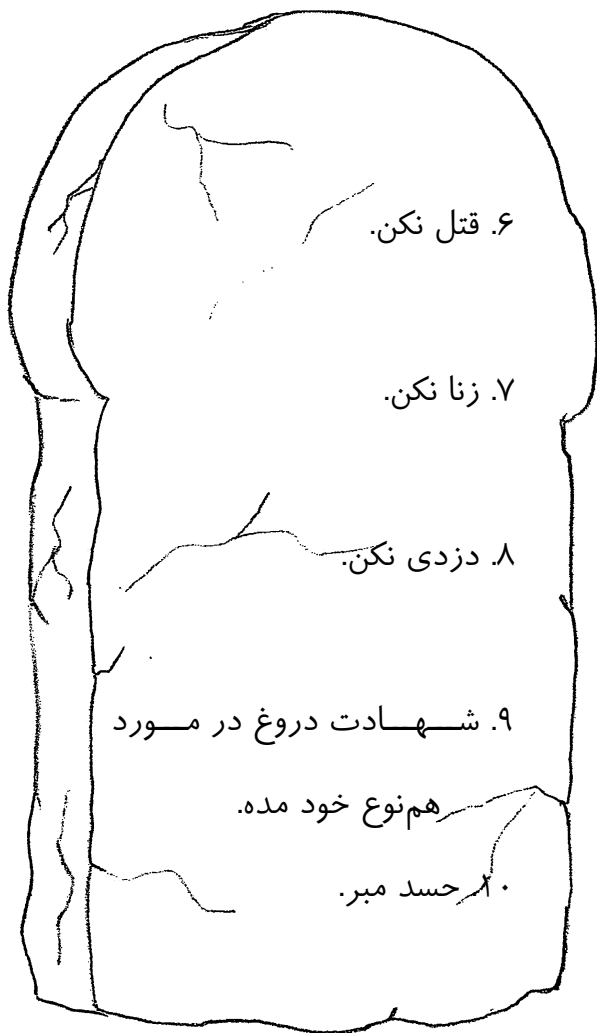 ۶. قتل نکن.
۷. زنا نکن.
۸. دزدی نکن.
۹. شـــهـــادت دروغ در مـــورد
هم‌نوع خود مده.
۱۰. حسد مبر.